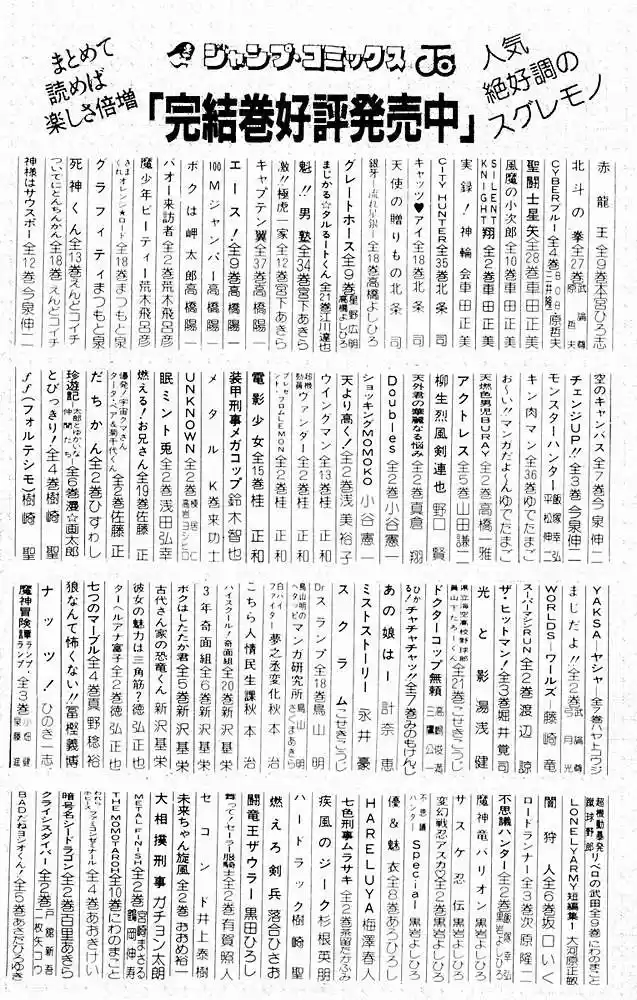 ジャンプ・コミックス
人気
絶好調の
スグレモノ
まとめて
読めば
楽しさ倍増
「完結巻好評発売中」
赤龍王 全9巻 本宮ひろ志
北斗の拳 全27巻 武論尊 原哲夫
CYBERブルー 全4巻 原哲夫
聖闘士星矢 全28巻 車田正美
風魔の小次郎 全10巻 車田正美
SILENT KNIGHT翔 全2巻 車田正美
実録!神輪会 車田正美
CITY HUNTER 全35巻 北条司
キャッツ♥アイ 全18巻 北条司
天使の贈りもの 北条司
銀牙―流れ星銀― 全18巻 高橋よしひろ
グレートホース 全9巻 星野広明 高橋よしひろ
まじかる☆タルるートくん 全21巻 江川達也
魁!!男塾 全34巻 宮下あきら
激!!極虎一家 全12巻 宮下あきら
キャプテン翼 全37巻 高橋陽一
エース! 全9巻 高橋陽一
100Mジャンパー 高橋陽一
ボクは岬太郎 高橋陽一
バオー来訪者 全2巻 荒木飛呂彦
魔少年ビーティー 荒木飛呂彦
きまぐれオレンジ★ロード 全18巻 まつもと泉
グラフィティ まつもと泉
死神くん 全13巻 えんどコイチ
ついでにとんちんかん 全18巻 えんどコイチ
神様はサウスポー 全12巻 今泉伸二
空のキャンバス 全7巻 今泉伸二
チェンジUP!! 全3巻 今泉伸二
モンスターハンター 飯塚幸弘 平松伸二
キン肉マン 全36巻 ゆでたまご
おーい!!マンガだよーん ゆでたまご
天燃色男児BURAY 全2巻 高橋一雅
アクトレス 全5巻 山田謙二
柳生烈風剣連也 野口賢
天外君の華麗なる悩み 全2巻 真倉翔
Doubles 全2巻 小谷憲一
ショッキングMOMOKO 小谷憲一
天より高く! 全2巻 浅美裕子
ウイングマン 全13巻 桂正和
超機動員ヴァンダー 全2巻 桂正和
プレゼント・フロムLEMON 全2巻 桂正和
電影少女 全15巻 桂正和
装甲刑事メガコップ 鈴木智也
メタルK 巻来功士
UNKNOWN 全2巻
眠兎 全2巻 浅田弘幸
燃える!お兄さん 全19巻 佐藤正
全2巻 佐藤正
だちかん 全2巻 ひすわし
珍遊記―太郎とゆかいな仲間たち― 全6巻 漫☆画太郎
とびっきり! 全4巻 樹崎聖
ff(フォルテシモ) 樹崎聖
YAKSA―ヤシャ― 全7巻 ハヤトコウジ
まじだよ!! 全2巻 武論尊 弓月光
WORLDS―ワールズ― 藤崎竜
スーパーマシンRUN 全2巻 渡辺諒
ザ・ヒットマン! 全3巻 堀井覚司
光と影 湯浅健
県立海空高校野球部員山下たろーくん 全21巻 こせきこうじ
ドクターコップ無頼 高嶋俊満 三鷹公一
ひかる!チャチャチャッ!! 全7巻 みのもけんじ
あの娘は! 計奈恵
ミストストーリー 永井豪
スクラム こせきこうじ
Dr.スランプ 全18巻 鳥山明
鳥山明のヘタッピマンガ研究所 鳥山明 さくまあきら
白バイファイター夢之丞変化 秋本治
こちら人情民生課 秋本治
ハイスクール!奇面組 全20巻 新沢基栄
3年奇面組 全6巻 新沢基栄
ボクはしたたか君 全5巻 新沢基栄
古代さん家の恐竜くん 新沢基栄
彼女の魅力は三角筋? 徳弘正也
ターヘルアナ富子 全2巻 徳弘正也
七つのマーブル 全4巻 真野稔裕
狼なんて怖くない!! 冨樫義博
ナッツ! ひのき一志
魔神冒険譚ランプ・ランプ 全3巻 小畑健 泉藤進
超機動暴発蹴球野郎リベロの武田 全9巻 にわのまこと
LONELY ARMY短編集 大河原正敏
闇狩人 全6巻 坂口いく
ロードランナー 全3巻 次原隆二
不思議ハンター 全2巻 飯塚幸弘 黒岩よしひろ
魔神竜バリオン 黒岩よしひろ
サスケ忍伝 黒岩よしひろ
変幻戦忍アスカ 全2巻 黒岩よしひろ
不思議ハンターSpecial 黒岩よしひろ
優&魅衣 全8巻 あろひろし
HARELUYA 梅澤春人
七色刑事ムラサキ 全2巻 茶留たかふみ
疾風のジーグ 杉根英明
ハードラック 樹崎聖
燃えろ剣兵 落合ひさお
闘竜王ザウラー 黒田ひろし
舞って!セーラー服騎士 全2巻 有賀照人
セコンド 井上泰樹
未来ちゃん旋風 全2巻 おおめ裕一
大相撲刑事 ガチョン太朗
METAL FINISH 全2巻 宮崎まさる 鶴岡伸寿
THE MOMOTAROH 全10巻 にわのまこと
全4巻 あおきけい
暗号名シードラゴン 全2巻 百里あきら
クライシスダイバー 全2巻 戸舘新吾 二枚矢コウ
BADだねヨシオくん! 全5巻 あさだひろゆき